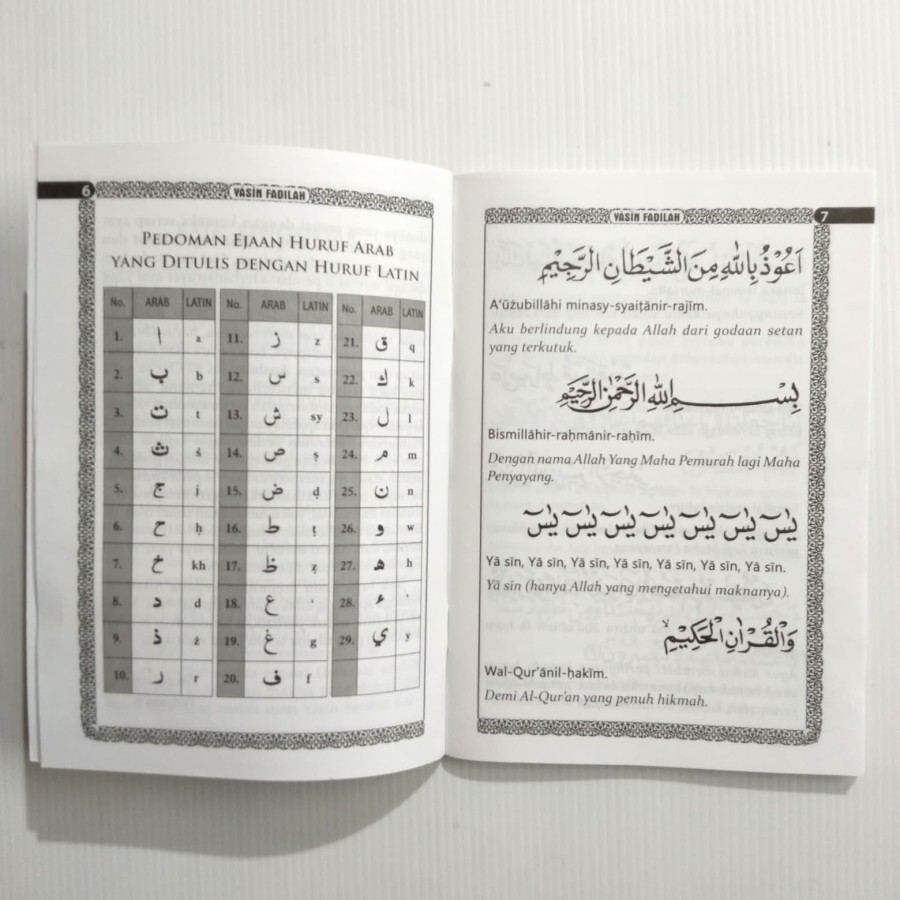 6
YASIN FADILAH
PEDOMAN EJAAN HURUF ARAB
YANG DITULIS DENGAN HURUF LATIN
No. ARAB LATIN No. ARAB LATIN No. ARAB LATIN
1. ا a 11. ز z 21. ق q
2. ب b 12. س s 22. ك k
3. ت t 13. ش sy 23. ل l
4. ث ṡ 14. ص ṣ 24. م m
5. ج j 15. ض ḍ 25. ن n
6. ح ḥ 16. ط ṭ 26. و w
7. خ kh 17. ظ ẓ 27. ه h
8. د d 18. ع ‘ 28. ء ’
9. ذ ż 19. غ g 29. ي y
10. ر r 20. ف f
YASIN FADILAH
7
اَعُوْذُ بِاللّٰهِ مِنَ الشَّيْطَانِ الرَّجِيْمِ
A‘ūżubillāhi minasy-syaiṭānir-rajīm.
Aku berlindung kepada Allah dari godaan setan
yang terkutuk.
بِسْــــــمِ اللّٰهِ الرَّحْمٰنِ الرَّحِيْمِ
Bismillāhir-raḥmānir-raḥīm.
Dengan nama Allah Yang Maha Pemurah lagi Maha
Penyayang.
يٰسۤ يٰسۤ يٰسۤ يٰسۤ يٰسۤ يٰسۤ يٰسۤ
Yā sīn, Yā sīn, Yā sīn, Yā sīn, Yā sīn, Yā sīn, Yā sīn.
Yā sīn (hanya Allah yang mengetahui maknanya).
وَالْقُرْاٰنِ الْحَكِيْمِۙ
Wal-Qur’ānil-ḥakīm.
Demi Al-Qur'an yang penuh hikmah.